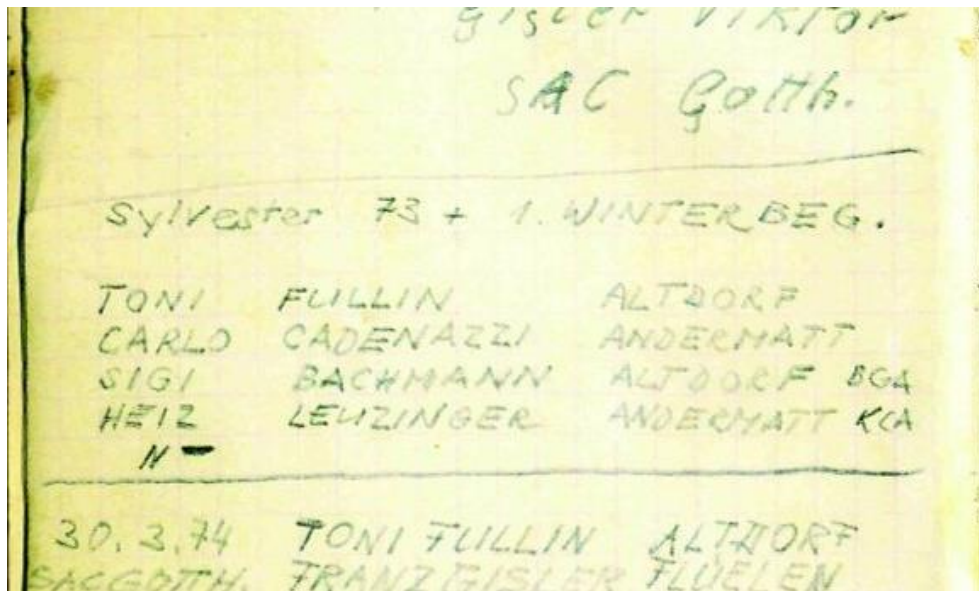 Gisler Viktor
SAC Gotth.
Sylvester 73 + 1. WINTERBEG.
TONI FULLIN ALTDORF
CARLO CADENAZZI ANDERMATT
SIGI BACHMANN ALTDORF BGA
HEIZ LEUZINGER ANDERMATT KCA
N -
30.3.74 TONI FULLIN ALTDORF
SAC GOTTH. FRANZ GISLER FLUELEN